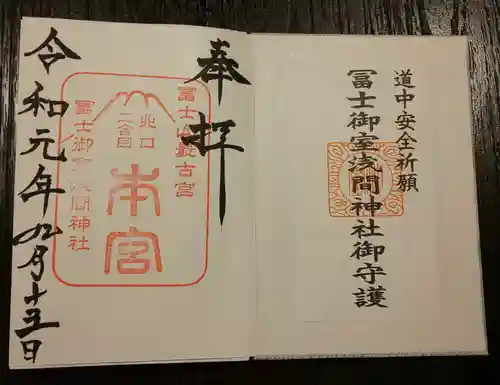 道中安全祈願
冨士御室浅間神社御守護
奉拝
冨士山最古宮
北口
二合目
本宮
冨士御室浅間神社
令和元年九月十五日